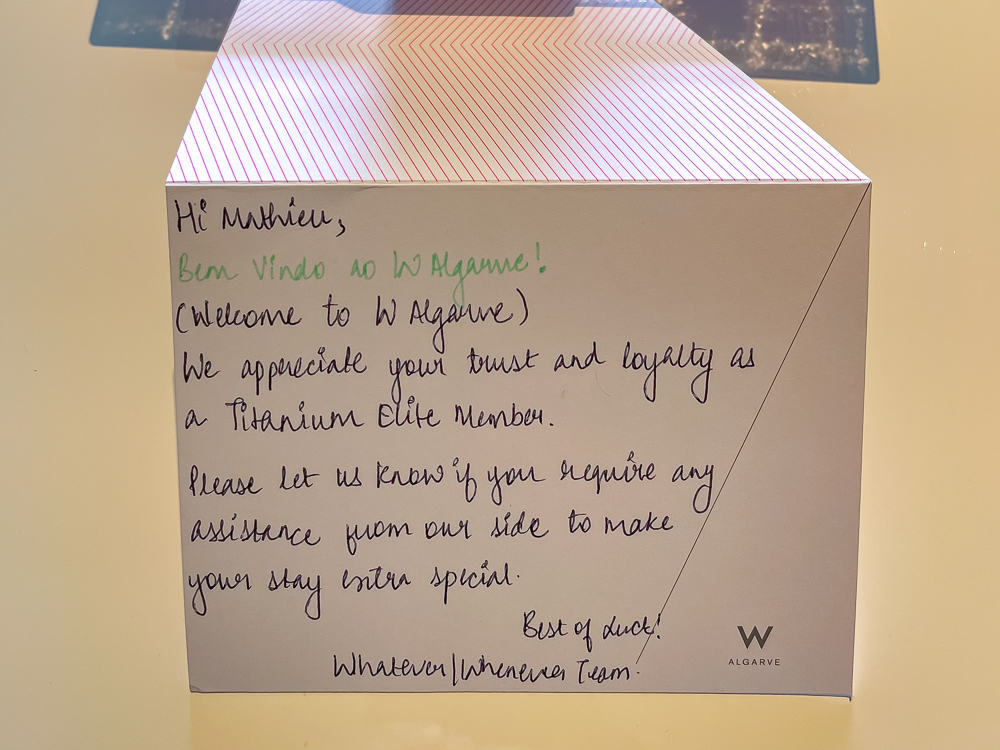 Hi Mathieu,
Bem Vindo ao W Algarve!
(Welcome to W Algarve)
We appreciate your trust and loyalty as
a Titanium Elite Member.
Please let us know if you require any
assistance from our side to make
your stay extra special.
Best of Luck!
Whatever/Whenever Team.
W
ALGARVE